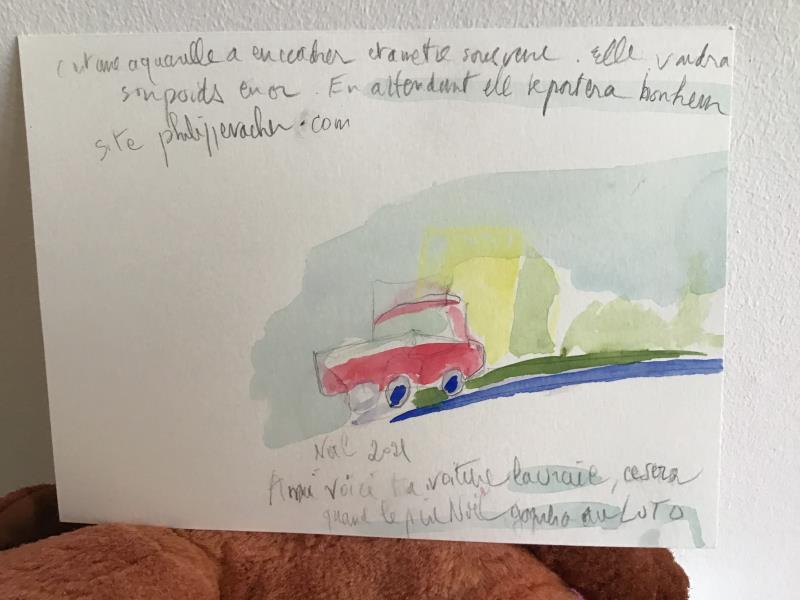 c'est une aquarelle a encadrer et a mettre sous verre. Elle vaudra
son poids en or. En attendant elle te portera bonheur
site .com
Noël 2021
voici ta voiture la vraie, ce sera
quand le père Noël gagnera au LOTO